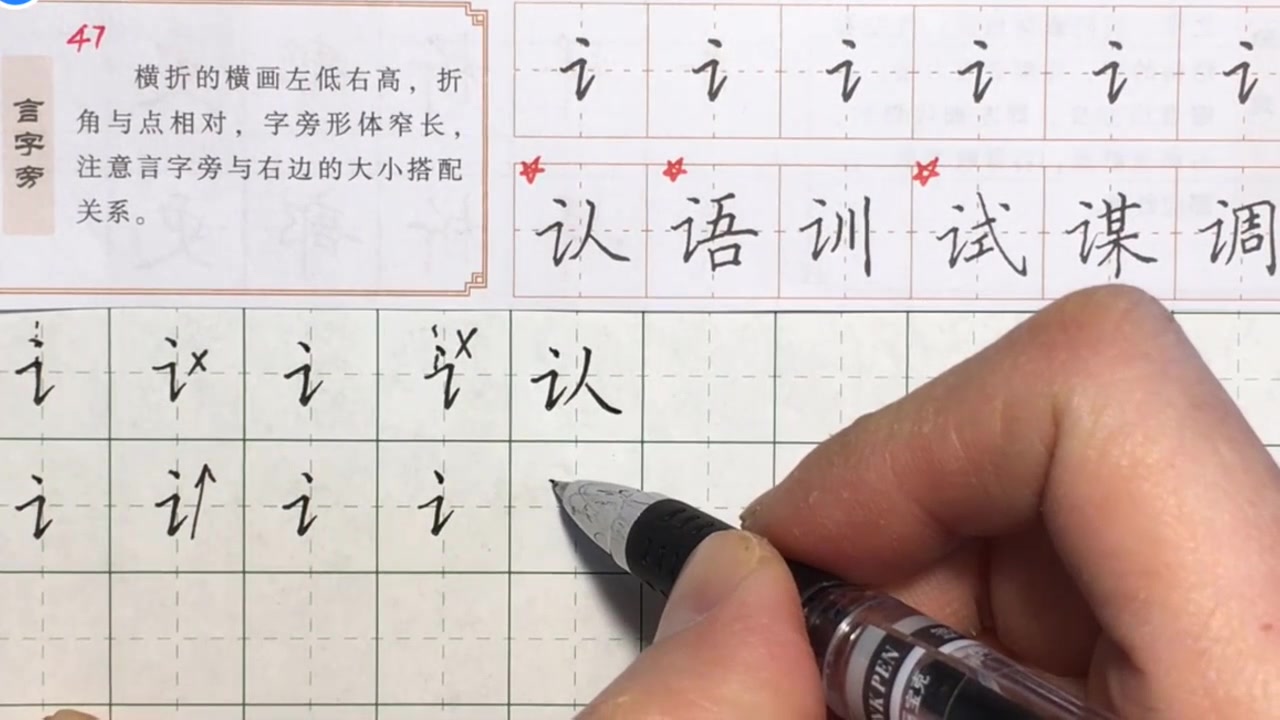 47
言字旁
横折的横画左低右高，折
角与点相对，字旁形体窄长，
注意言字旁与右边的大小搭配
关系。
讠 讠 讠 讠 讠 讠
认 语 训 试 谋 调
讠 讠 x 讠 讠 x 认
讠 讠 讠 讠
K PEN
宝克